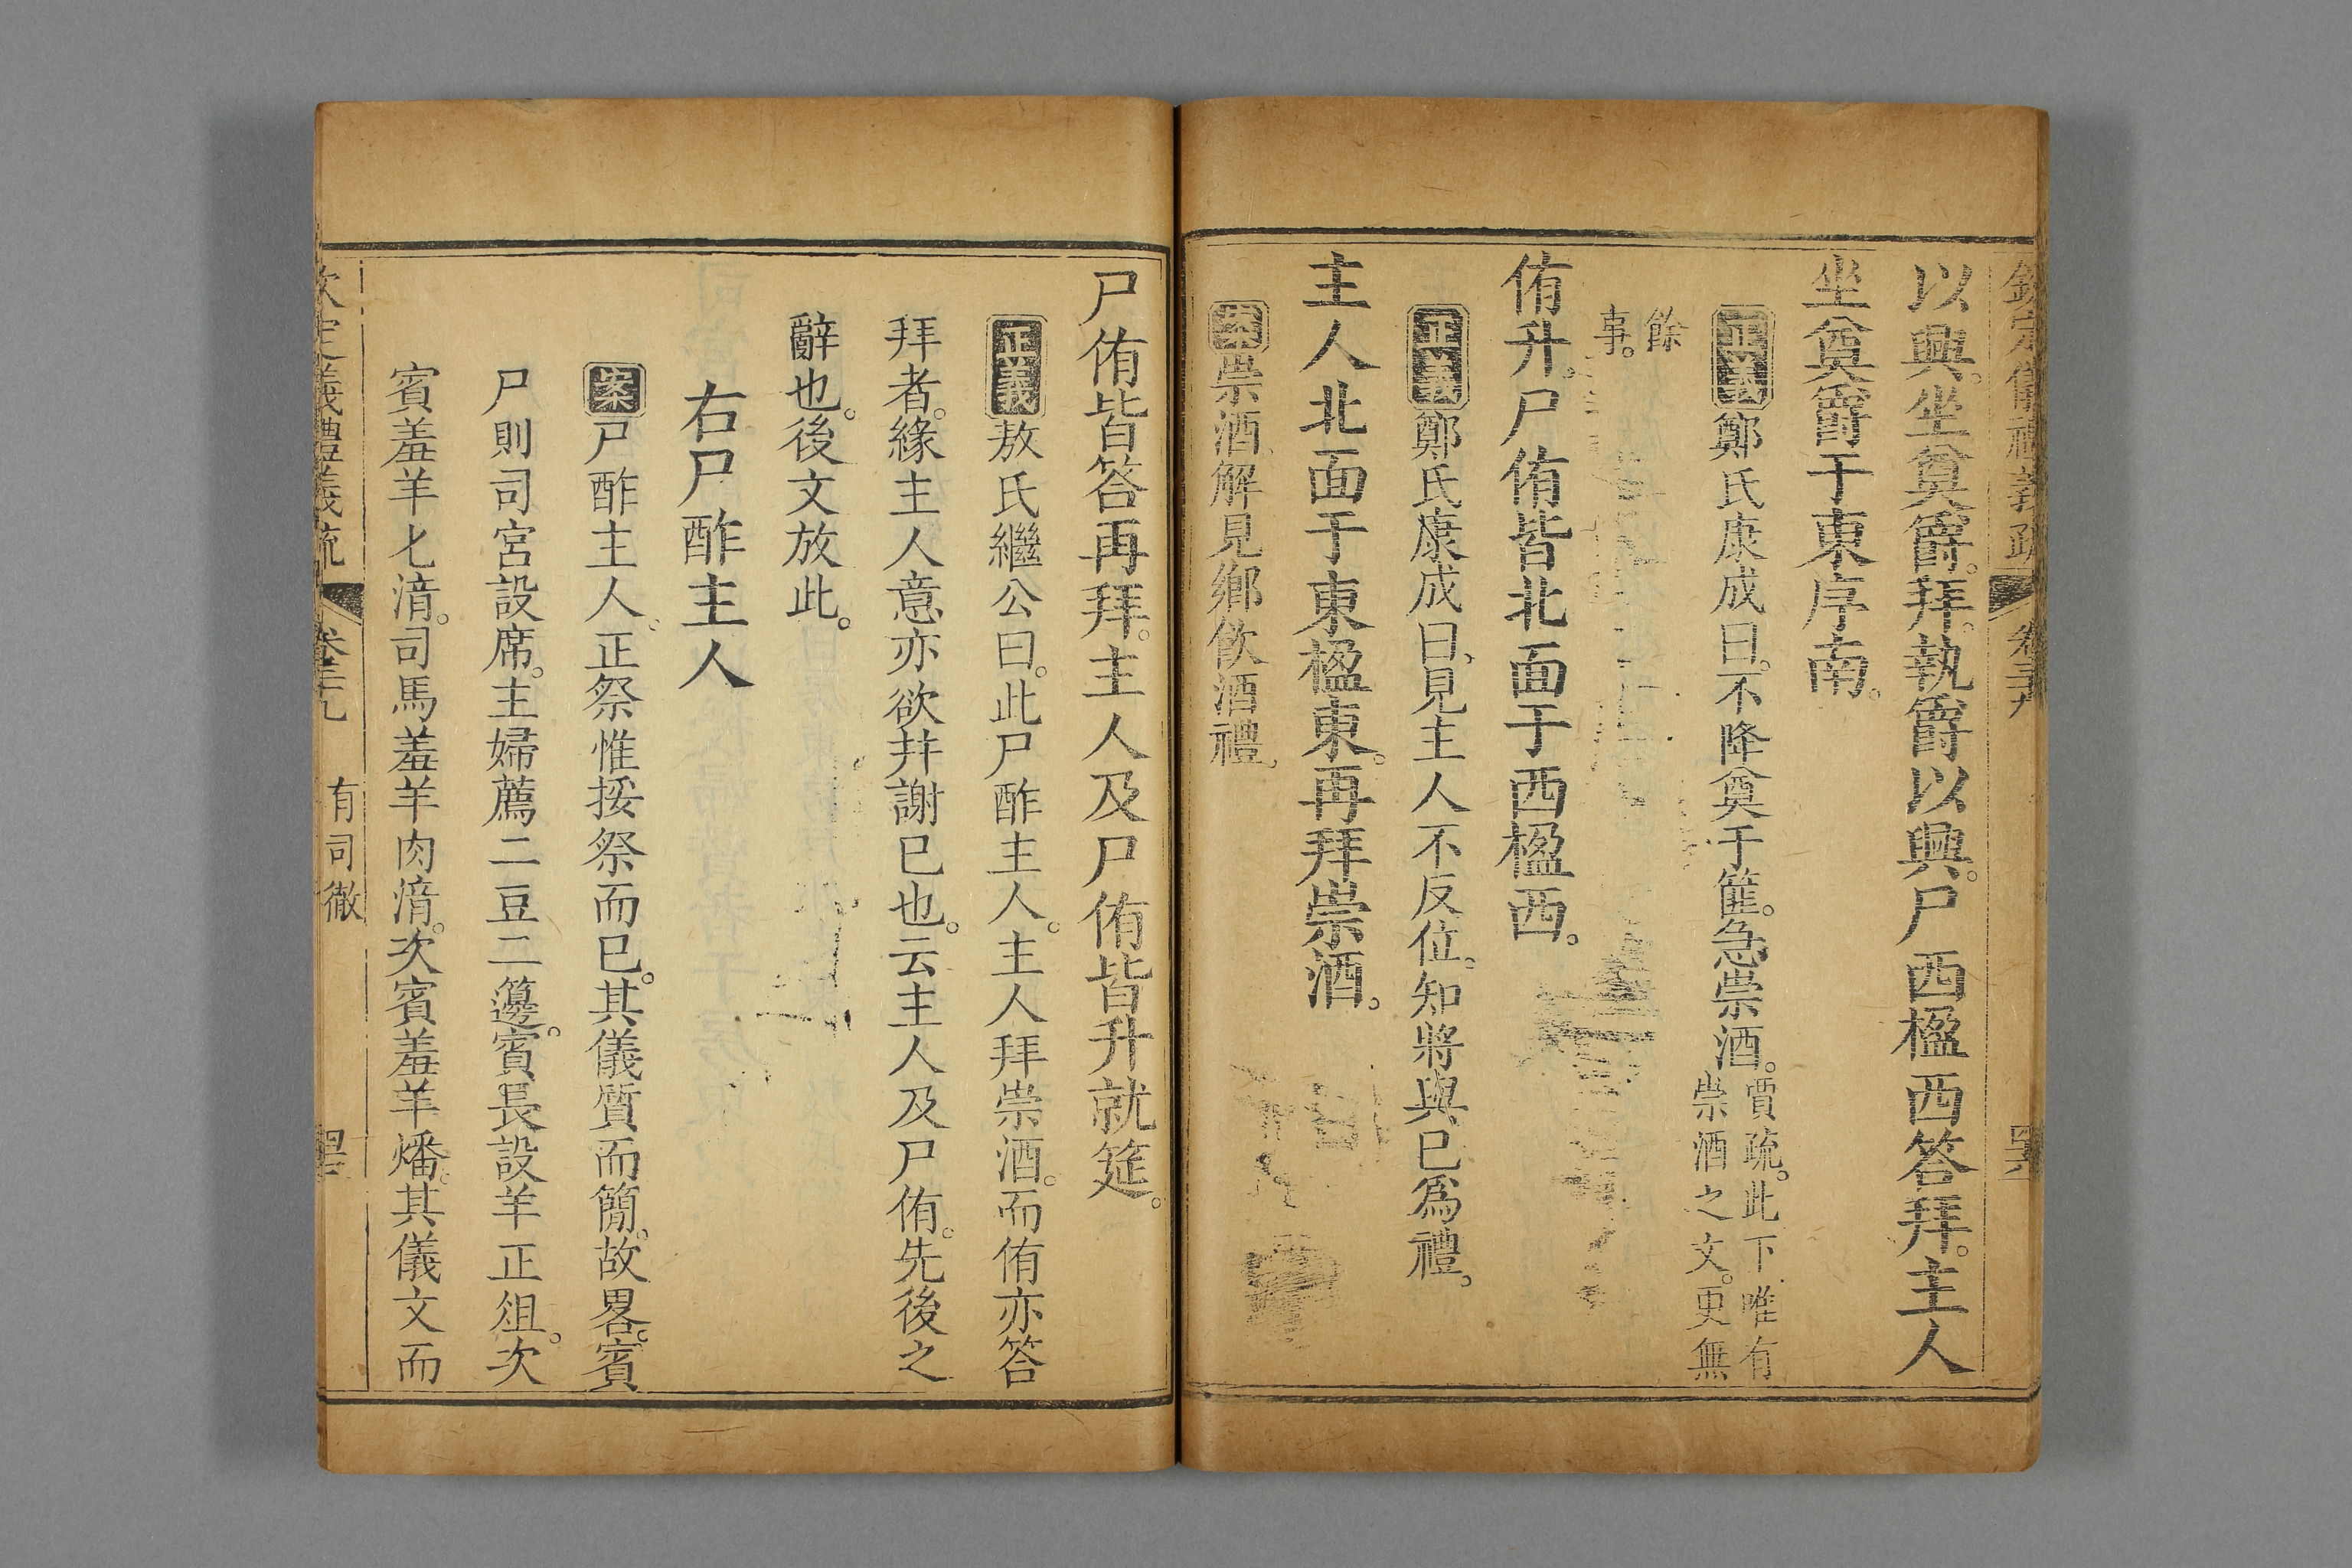 以興。坐奠爵。拜。執爵以興。尸西楹西答拜。主人
坐奠爵于東序南。
正義鄭氏康成曰。不降奠于篚。急崇酒。賈疏。此下唯有
崇酒之文。更無
餘
事。
侑升。尸侑皆北面于西楹西。
正義鄭氏康成曰。見主人不反位。知將與已爲禮。
主人北面于東楹東。再拜崇酒。
案崇酒解見鄉飲酒禮。
尸侑皆答再拜。主人及尸侑皆升就筵。
正義敖氏繼公曰。此尸酢主人。主人拜崇酒。而侑亦答
拜者。緣主人意亦欲幷謝已也。云主人及尸侑。先後之
辭也。後文放此。
右尸酢主人
案尸酢主人。正祭惟挼祭而已。其儀質而簡。故畧。賓
尸則司宮設席。主婦薦二豆二籩。賓長設羊正俎。次
賓羞羊匕湆。司馬羞羊肉湆。次賓羞羊燔。其儀文而
欽定儀禮義疏 卷三十九 有司徹